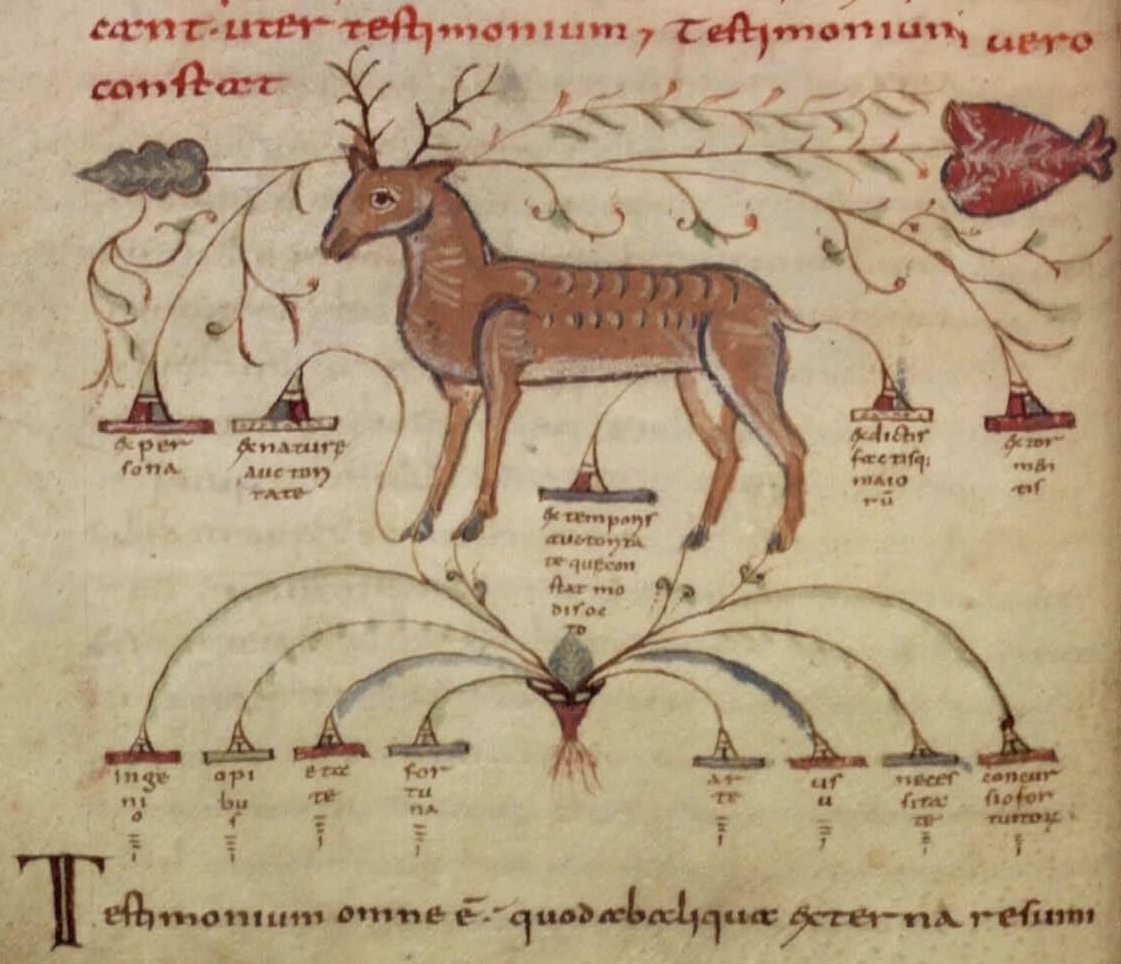 cant·uter testimonium, Testimonium uero
constat
Ex per
sona
Ex nature
auctori
tate
Ex temporis
auctorita
te que con
stat mo
dis oc
to
Ex dictis
factisq;
maio
rū
Ex tor
men
tis
inge
ni
o
opi
bu
s
eta
te
for
tu
na
ar
te
us
u
neces
sita
te
concur
sio for
tuitoꝝ
Testimonium omne ē· quod ab aliqua externa resumi